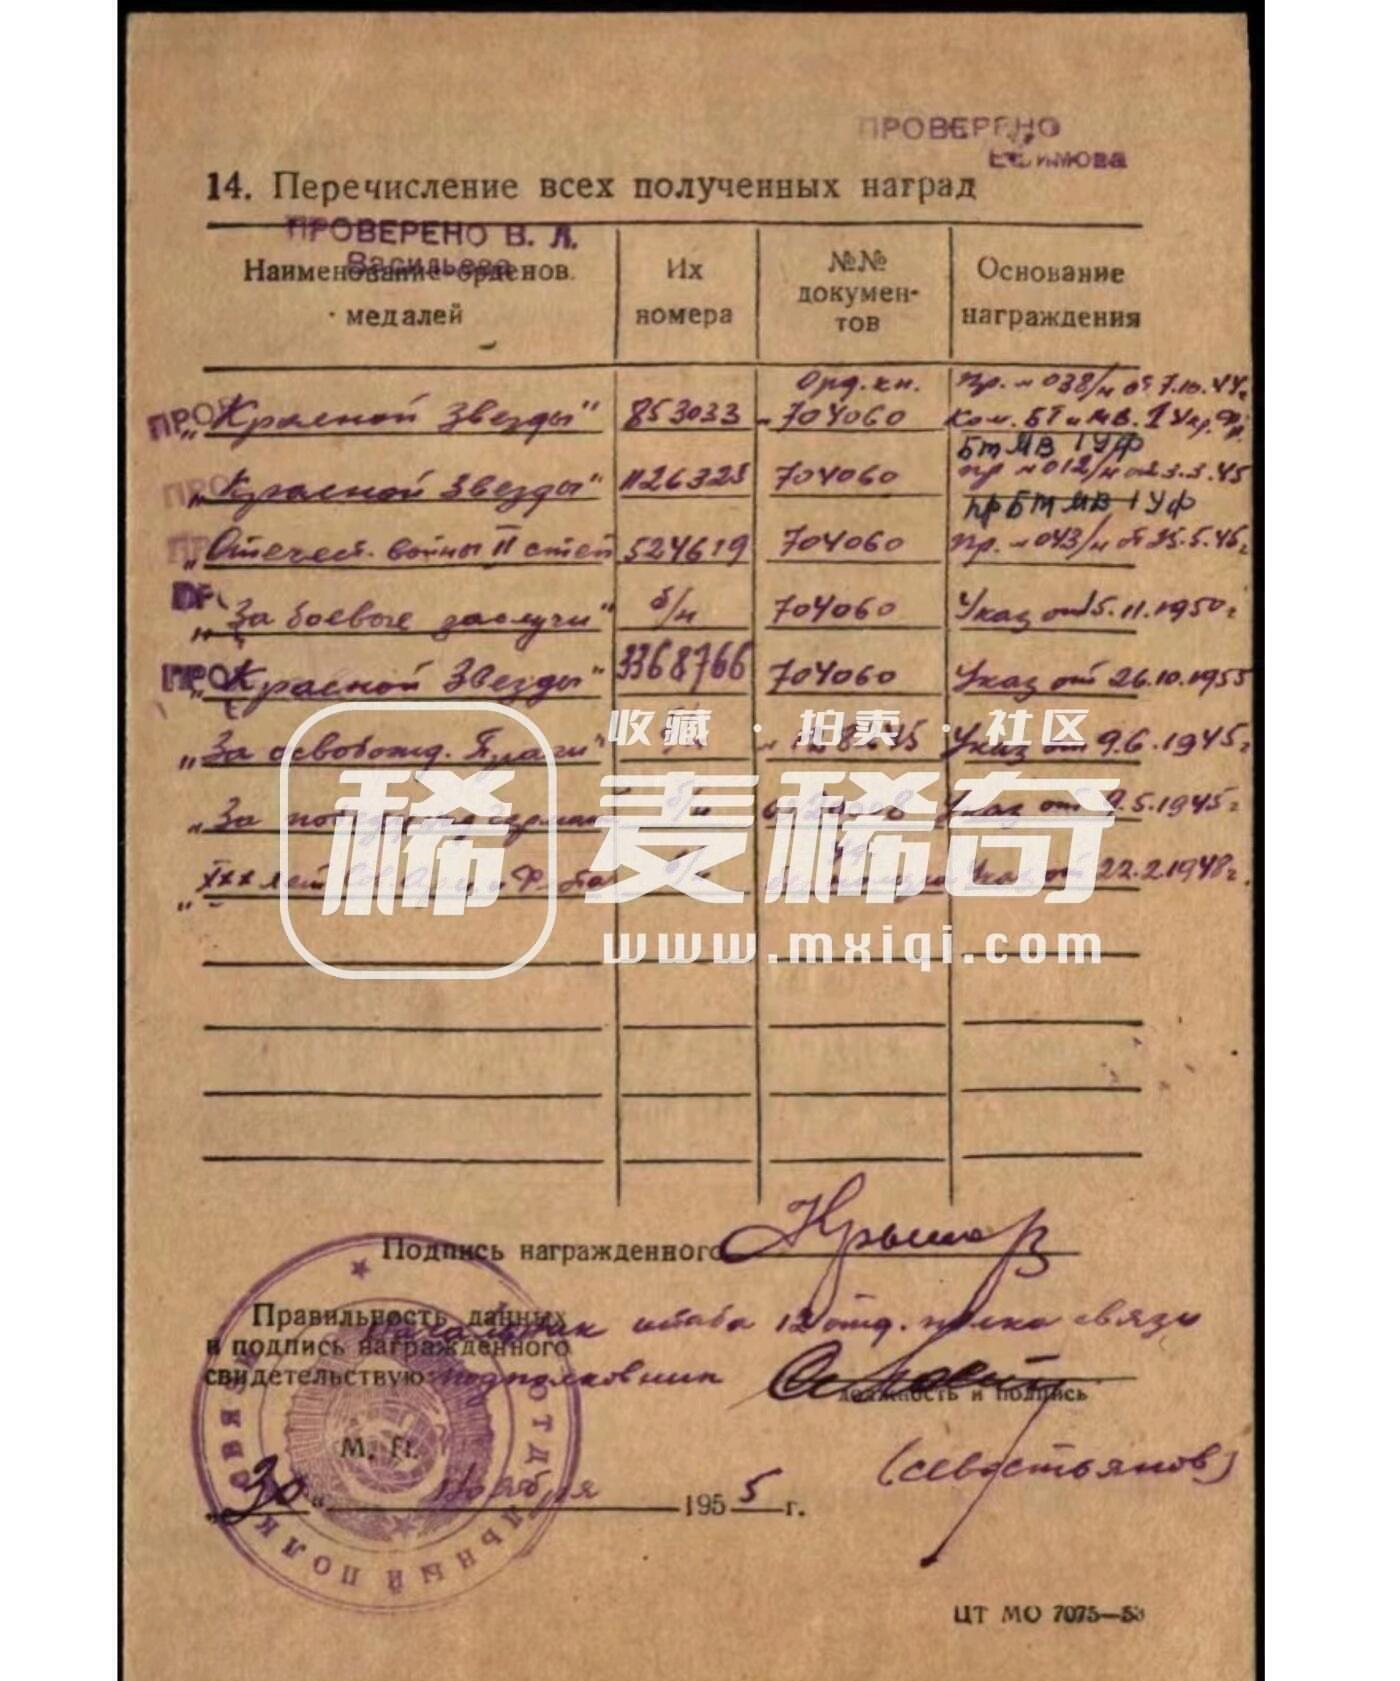 ПРОВЕРЕНО
Ефимова
14. Перечисление всех полученных наград
ПРОВЕРЕНО В. Л.
Васильева
Наименование орденов медалей | Их номера | №№ докумен- тов | Основание награждения
Орд. кн. Пр. № 038/н от 7.10.44г.
ПРОВ „Красной Звезды" 853033 704060 Ком. БТ и МВ. 1 Укр. Фр.
БТ МВ 1 УФ
ПРО „Красной Звезды" 1126325 704060 пр № 012/н от 3.3.45
пр БТ МВ 1 УФ
„Отечест. войны II степ 524619 704060 Пр. № 043/н от 25.5.45г
„За боевые заслуги" б/н 704060 Указ от 15.11.1950г
ПРО „Красной Звезды" 3368766 704060 Указ от 26.10.1955
„За освобожд. Праги" Указ от 9.6.1945г
„За б/н Указ от 9.5.1945г
„XXX лет Сов. Арм. и Ф-та б/н Указ от 22.2.1948г.
收藏 · 拍卖 · 社区
稀 麦稀奇
www.mxiqi.com
Подпись награжденного
Правильность данных
и подпись награжденного
свидетельствую:
начальник штаба 12 отд. полка связи
подполковник
должность и подпись
М. П.
(Севостьянов)
„30" ноября 1955 г.
ОТДЕЛЬНЫЙ ПОЛК СВЯЗИ
ЦТ МО 7075—53